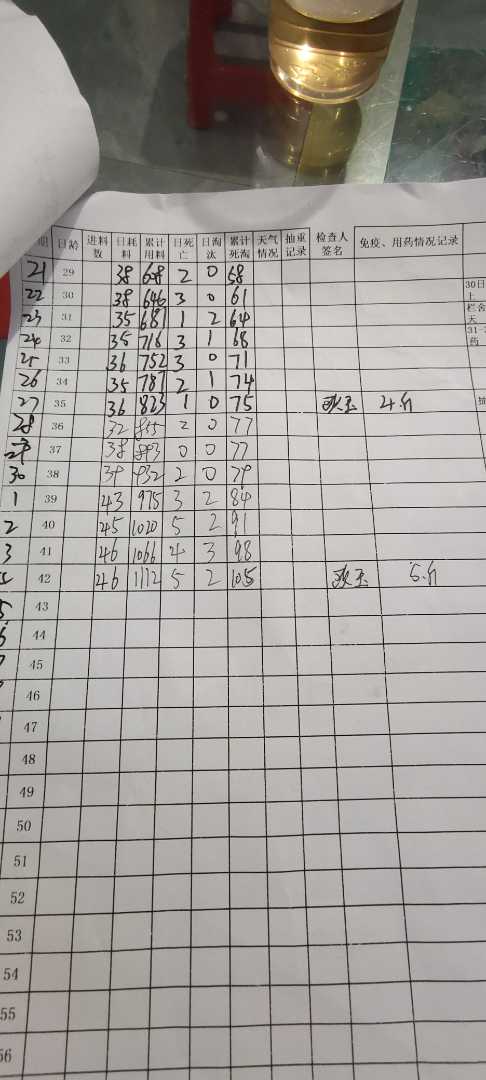 期 日龄 进料数 日耗料 累计用料 日死亡 日淘汰 累计死淘 天气情况 抽重记录 检查人签名 免疫、用药情况记录
21 29 38 608 2 0 58
22 30 38 646 3 0 61 30日
上
23 31 35 681 1 2 64 栏舍
天
24 32 35 716 3 1 68 31-
药
25 33 36 752 3 0 71
26 34 35 787 2 1 74
27 35 36 823 1 0 75 4斤
28 36 32 855 2 0 77
29 37 38 893 0 0 77
30 38 39 932 2 0 79
1 39 43 975 3 2 84
2 40 45 1020 5 2 91
3 41 46 1066 4 3 98
42 46 1112 5 2 105 5斤
5 43
6 44
45
46
47
48
49
50
51
52
53
54
55
56